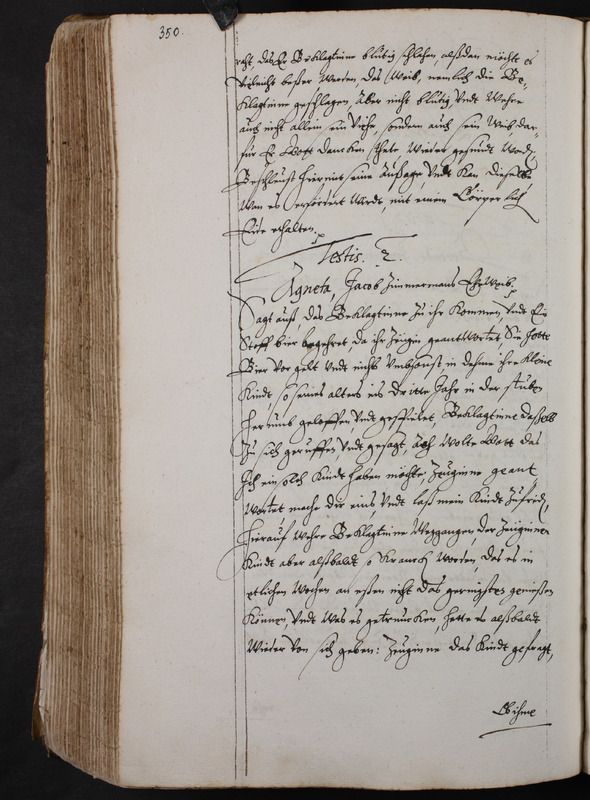 350.
echt, das Er Beklagtinne blutig schlahen, alßdan möchte es
vieleicht beßer werden, das Weib, nemlich die Be-
klagtinne geschlagen, Aber nicht blutig vndt wehre
auch nicht allein sein Viehe, sondern auch sein Weib, dar-
für Er Gott dancken thete, wieder gesundt word,
Beschleust hiermit seine Außage, vndt kan dieselbe
wan es erfordert würdt, mit einem Cörperlich
Eide erhalten.
Testis. 2.
Agneta, Jacob Zimmermans EheWeib.
Sagt auß, das Beklagtinne zu ihr kommen, vndt Ein
Stoff bier begehret, da ihr Zeugin geantwortet Sie hette
Bier vor gelt vndt nichts vmbsonst in dehme ihr kleine
Kindt so seines alters ins dritte Jahr in der stuben
herumb geloffen, vndt gespielet, Beklagtinne daßelb
zu sich geruffen, vndt gesagt, Ach wolte Gott das
Ich ein solch Kindt haben möchte, Zeuginne geant
wortet mache dir eins, vndt laß mein Kindt zufried,
hierauf wehre Beklagtinne weggangen, der Zeuginnen
Kindt aber alßbaldt so kranck worden, das es in
etlichen wochen an eßen nicht das geringstes genießen
können, vndt was es getruncken, hette es alßbaldt
wieder von sich geben: Zeuginne das Kindt gefragt,
Ob ihme